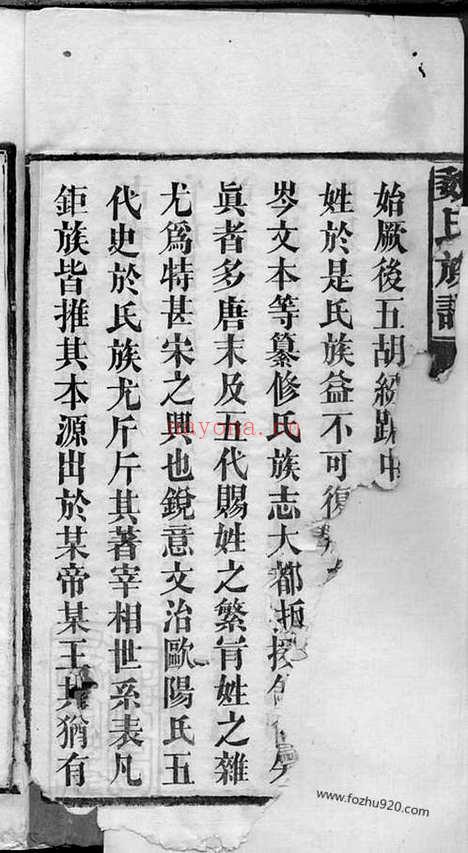 魏氏族譜
始厥後五胡紛
姓於是氏族益不可復
岑文本等纂修氏族志大都
眞者多唐末及五代賜姓之繁冐姓之雜
尤爲特甚宋之興也銳意文治歐陽氏五
代史於氏族尤斤斤其著宰相世系表凡
鉅族皆推其本源出於某帝某王其猶有
nayona.cn
www.fozhu920.com